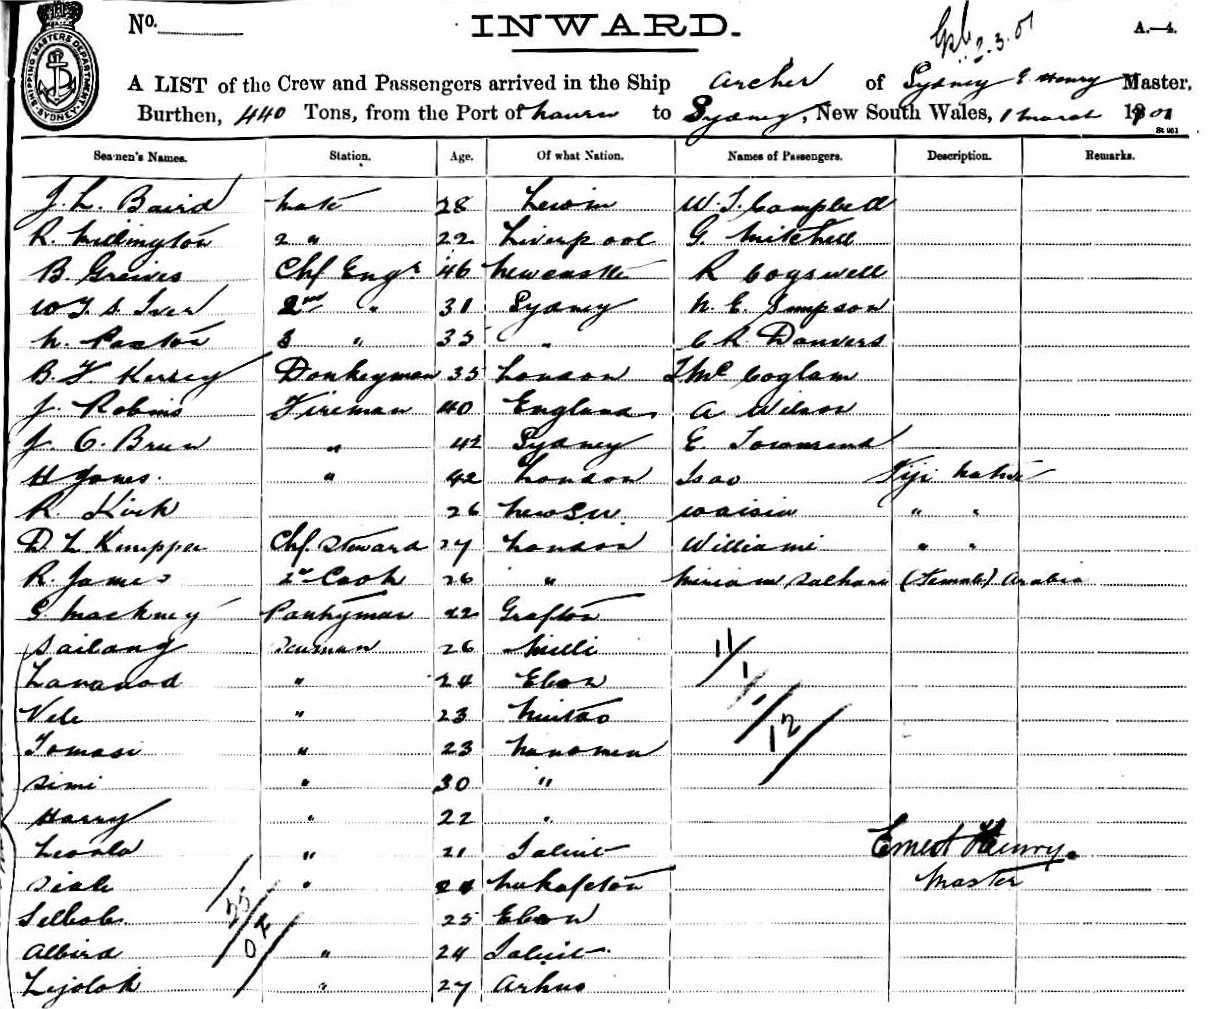 No. INWARD. 2.3.01 A.—4.
A LIST of the Crew and Passengers arrived in the Ship Archer of Sydney E. Henry Master,
Burthen, 440 Tons, from the Port of to Sydney, New South Wales, 1 March 1901
SHIPPING MASTERS DEPARTMENT SYDNEY
Seamen's Names. Station. Age. Of what Nation. Names of Passengers. Description. Remarks.
J. L. Baird Mate 28 W. T. Campbell
R. Millington 2 " 22 Liverpool G. Mitchell
B. Greives Chf Engr 46 Newcastle R Cogswell
W T. S. Iver 2nd " 31 Sydney N. E. Simpson
N. Paxton 3 " 35 " C R. Danvers
B. F. Kersey Donkeyman 35 London T Mc Coglam
J. Robins Fireman 40 England A Wilson
J. O. Brien " 42 Sydney E. Townsend
H Jones. " 42 London Isao Fiji Native
R. Kirk 26 New S.W. Waisiu " "
D. L. Kemppa Chf. Steward 27 London Williami " "
R. James 2nd Cook 26 " Miriam (Female) Arabia
G. Mackney Pantryman 22 Grafton
Sailang Seaman 26 Milli
Lananod " 24 Ebon
Vele " 23 Niutao
Tomasi " 23 Nanomea
Simi " 30 "
Harry " 22 "
" 21 Jaluit Ernest Henry.
Siale " 24 Nukufetau Master
25 Ebon
Albird " 24 Jaluit
Lijolok " 27 Arhno
11/1
1/12
25/02